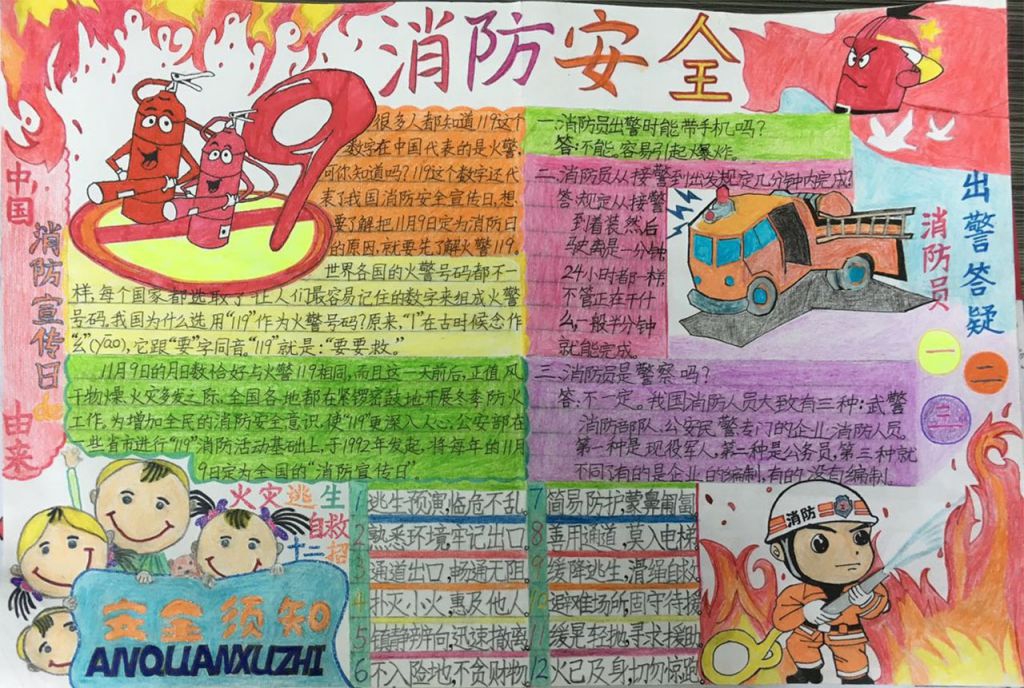 消防安全
中国消防宣传日de由来
很多人都知道119这个
数字在中国代表的是火警,
可你知道吗?119这个数字还代
表了我国消防安全宣传日,想
要了解把11月9日定为消防日
的原因,就要先了解火警119.
世界各国的火警号码都不一
样,每个国家都选取了让人们最容易记住的数字来组成火警
号码,我国为什么选用“119”作为火警号码?原来,“1”在古时候念作
“幺”(yāo),它跟“要”字同音。“119”就是:“要要救。”
11月9日的月日数恰好与火警119相同,而且这一天前后,正值风
干物燥、火灾多发之际,全国各地都在紧锣密鼓地开展冬季防火
工作。为增加全民的消防安全意识,使“119”更深入人心,公安部在
一些省市进行“119”消防活动基础上,于1992年发起,将每年的11月
9日定为全国的“消防宣传日”。
一.消防员出警时能带手机吗?
答:不能,容易引起爆炸。
二.消防员从接警到出发规定几分钟内完成?
答:规定从接警
到着装然后
驶离是一分钟
24小时都一样,
不管正在干什
么,一般半分钟
就能完成。
三.消防员是警察吗?
答:不一定。我国消防人员大致有三种:武警
消防部队、公安民警、专门的企业消防人员。
第一种是现役军人,第二种是公务员,第三种就
不同了有的是企业的编制,有的没有编制。
消防员
出警答疑
一
二
三
火灾逃生
自救
十二招
安全须知
ANQUANXUZHI
1 逃生预演,临危不乱。
2 熟悉环境,牢记出口。
3 通道出口,畅通无阻。
4 扑灭小火,惠及他人
5 镇静辨向,迅速撤离
6 不入险地,不贪财物
7 简易防护,蒙鼻匍匐
8 善用通道,莫入电梯
9 缓降逃生,滑绳自救
10 避难场所,固守待援
11 缓晃轻抛,寻求援助
12 火已及身,切勿惊跑
消防